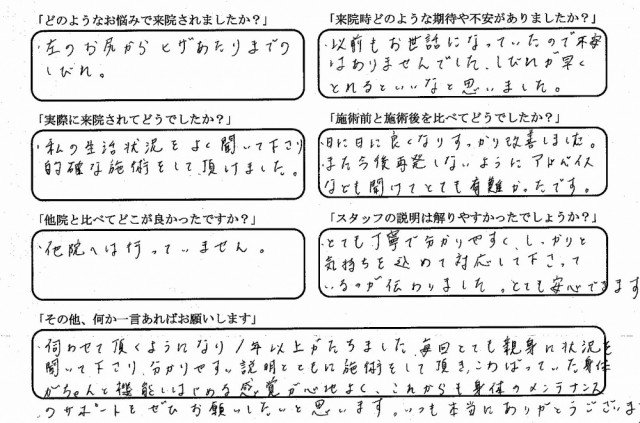 「どのようなお悩みで来院されましたか？」
・左のお尻からヒザあたりまでの
しびれ。
「来院時どのような期待や不安がありましたか？」
・以前もお世話になっていたので不安
はありませんでした、しびれが早く
とれるといいなと思いました。
「実際に来院されてどうでしたか？」
・私の生活状況をよく聞いて下さり
的確な施術をして頂けました。
「施術前と施術後を比べてどうでしたか？」
・日に日に良くなりすっかり改善しました。
また今後再発しないようにアドバイス
なども聞けてとても有難かったです。
「他院と比べてどこが良かったですか？」
・他院へは行っていません。
「スタッフの説明は解りやすかったでしょうか？」
・とても丁寧で分かりやすく、しっかりと
気持ちを込めて対応して下さって
いるのが伝わりました。とても安心できます
「その他、何か一言あればお願いします」
・伺わせて頂くようになり1年以上がたちました、毎回とても親身に状況を
聞いて下さり、分かりやすい説明とともに施術をして頂き、こわばっていた身体
がちゃんと機能しはじめる感覚が心地よく、これからも身体のメンテナンス
のサポートをぜひお願いしたいと思います。いつも本当にありがとうございま